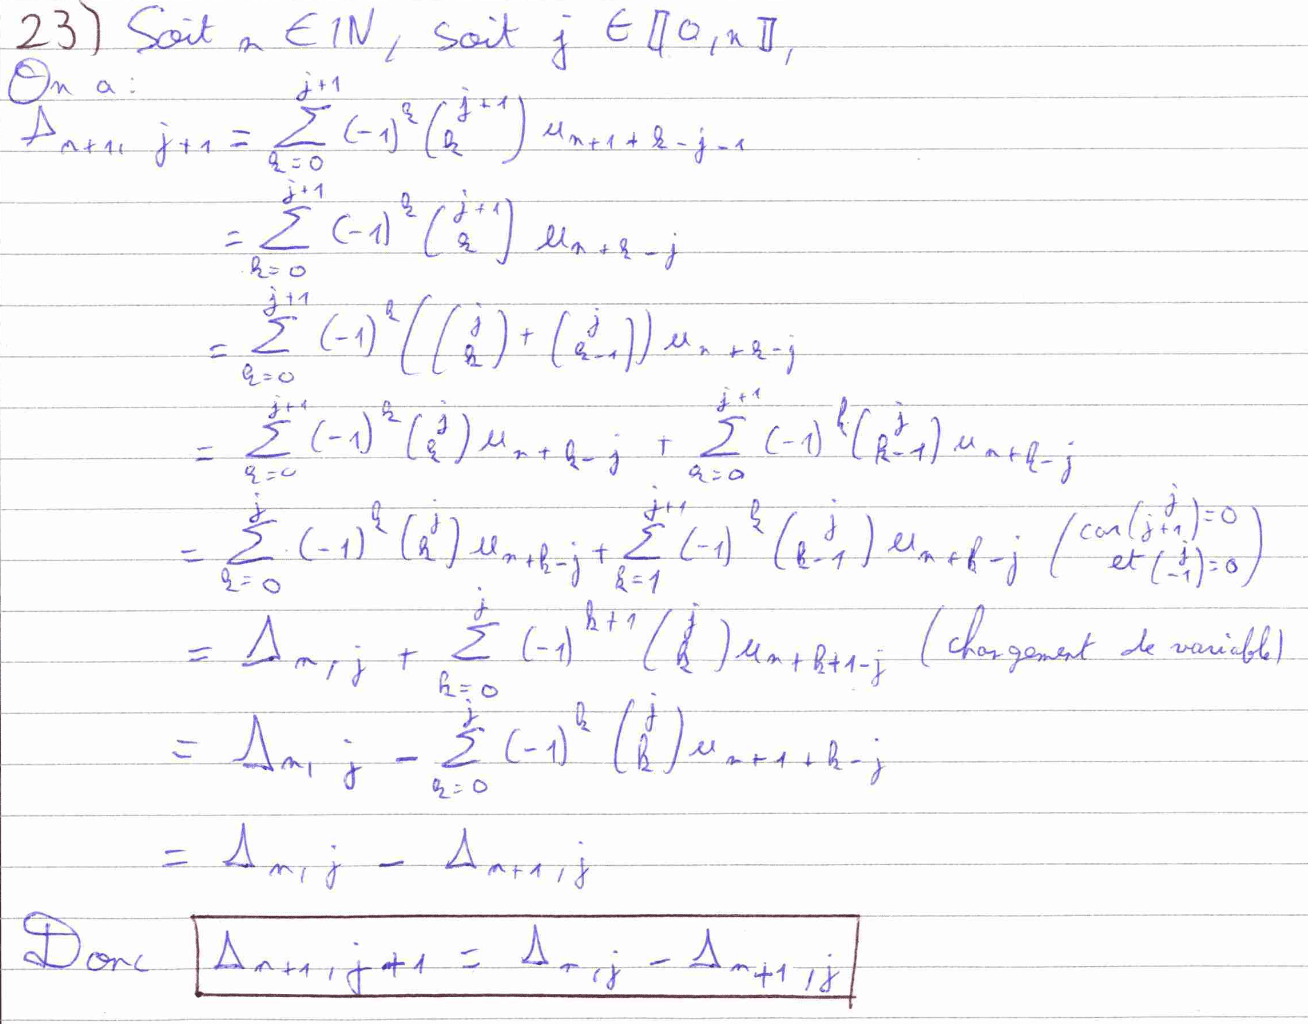 23) Soit n ∈ ℕ, soit j ∈ ⟦0, n⟧,
On a :
Δ_{n+1, j+1} = \sum_{k=0}^{j+1} (-1)^k \binom{j+1}{k} u_{n+1+k-j-1}
= \sum_{k=0}^{j+1} (-1)^k \binom{j+1}{k} u_{n+k-j}
= \sum_{k=0}^{j+1} (-1)^k \left( \binom{j}{k} + \binom{j}{k-1} \right) u_{n+k-j}
= \sum_{k=0}^{j+1} (-1)^k \binom{j}{k} u_{n+k-j} + \sum_{k=0}^{j+1} (-1)^k \binom{j}{k-1} u_{n+k-j}
= \sum_{k=0}^{j} (-1)^k \binom{j}{k} u_{n+k-j} + \sum_{k=1}^{j+1} (-1)^k \binom{j}{k-1} u_{n+k-j} (car \binom{j}{j+1} = 0 et \binom{j}{-1} = 0)
= Δ_{n, j} + \sum_{k=0}^{j} (-1)^{k+1} \binom{j}{k} u_{n+k+1-j} (changement de variable)
= Δ_{n, j} - \sum_{k=0}^{j} (-1)^k \binom{j}{k} u_{n+1+k-j}
= Δ_{n, j} - Δ_{n+1, j}
Donc Δ_{n+1, j+1} = Δ_{n, j} - Δ_{n+1, j}